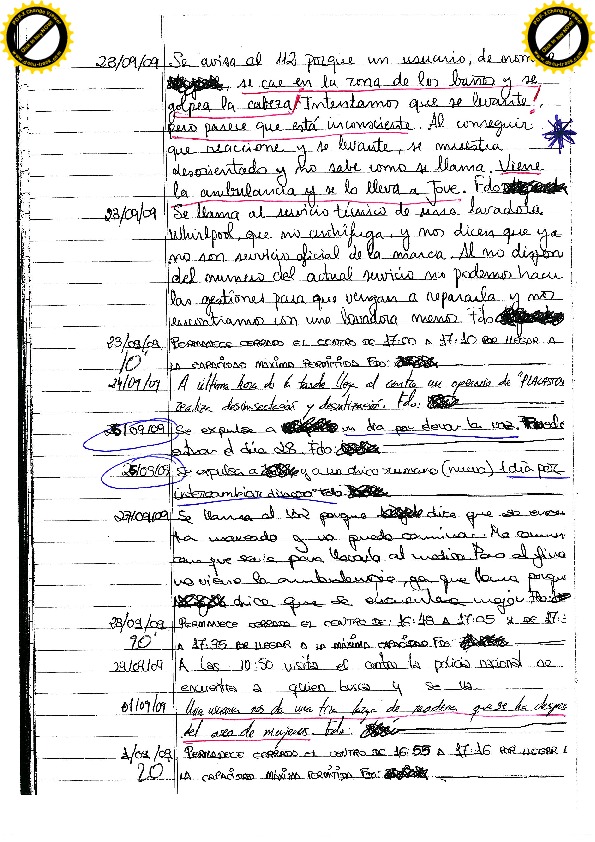 23/09/09 Se avisa al 112 porque un usuario, de nombre
, se cae en la zona de los baños y se
golpea la cabeza! Intentamos que se levante!
pero parece que está inconsciente. Al conseguir
que reaccione y se levante, se muestra
desorientado y no sabe como se llama. Viene
la ambulancia y se lo lleva a Jove. Fdo
23/09/09 Se llama al servicio técnico de una lavadora
Whirlpool, que no centrifuga, y nos dicen que ya
no son servicio oficial de la marca. Al no
del numero del actual servicio no podemos hacer
las gestiones para que vengan a repararla y nos
encontramos con una lavadora menos. Fdo
23/09/09 PERMANECE CERRADO EL CENTRO DE 17:00 A 17:10 POR LLEGAR A
10' LA CAPACIDAD MÁXIMA PERMITIDA Fdo:
24/09/09 A última hora de la tarde llega al centro un operario de "
realizar desinsectación y desratización. Fdo:
25/09/09 Se expulsa a un dia por elevar la voz. Puede
entrar el día 28. Fdo:
25/09/09 Se expulsa a y a un chico rumano (nuevo) 1 dia por
intercambiar dinero Fdo
27/09/09 Se llama al 112 porque dice que se
ha mareado y no puede caminar.
que seria para llevarlo al medico. Pero al final
no viene la ambulancia, ya que llama porque
dice que se encuentra mejor Fdo:
28/09/09 PERMANECE CERRADO EL CENTRO DE: 16:48 A 17:05 Y DE 17:
A 17:35 POR LLEGAR A LA MÁXIMA CAPACIDAD Fdo:
29/09/09 A las 10:50 visita el centro la policia nacional no
encuentra a quien busca y se va
01/09/09 de una tira larga de madera que se ha
del area de mujeres. Fdo:
PERMANECE CERRADO EL CENTRO DE 16:55 A 17:16 POR LLEGAR
20 LA CAPACIDAD MÁXIMA PERMITIDA Fdo: